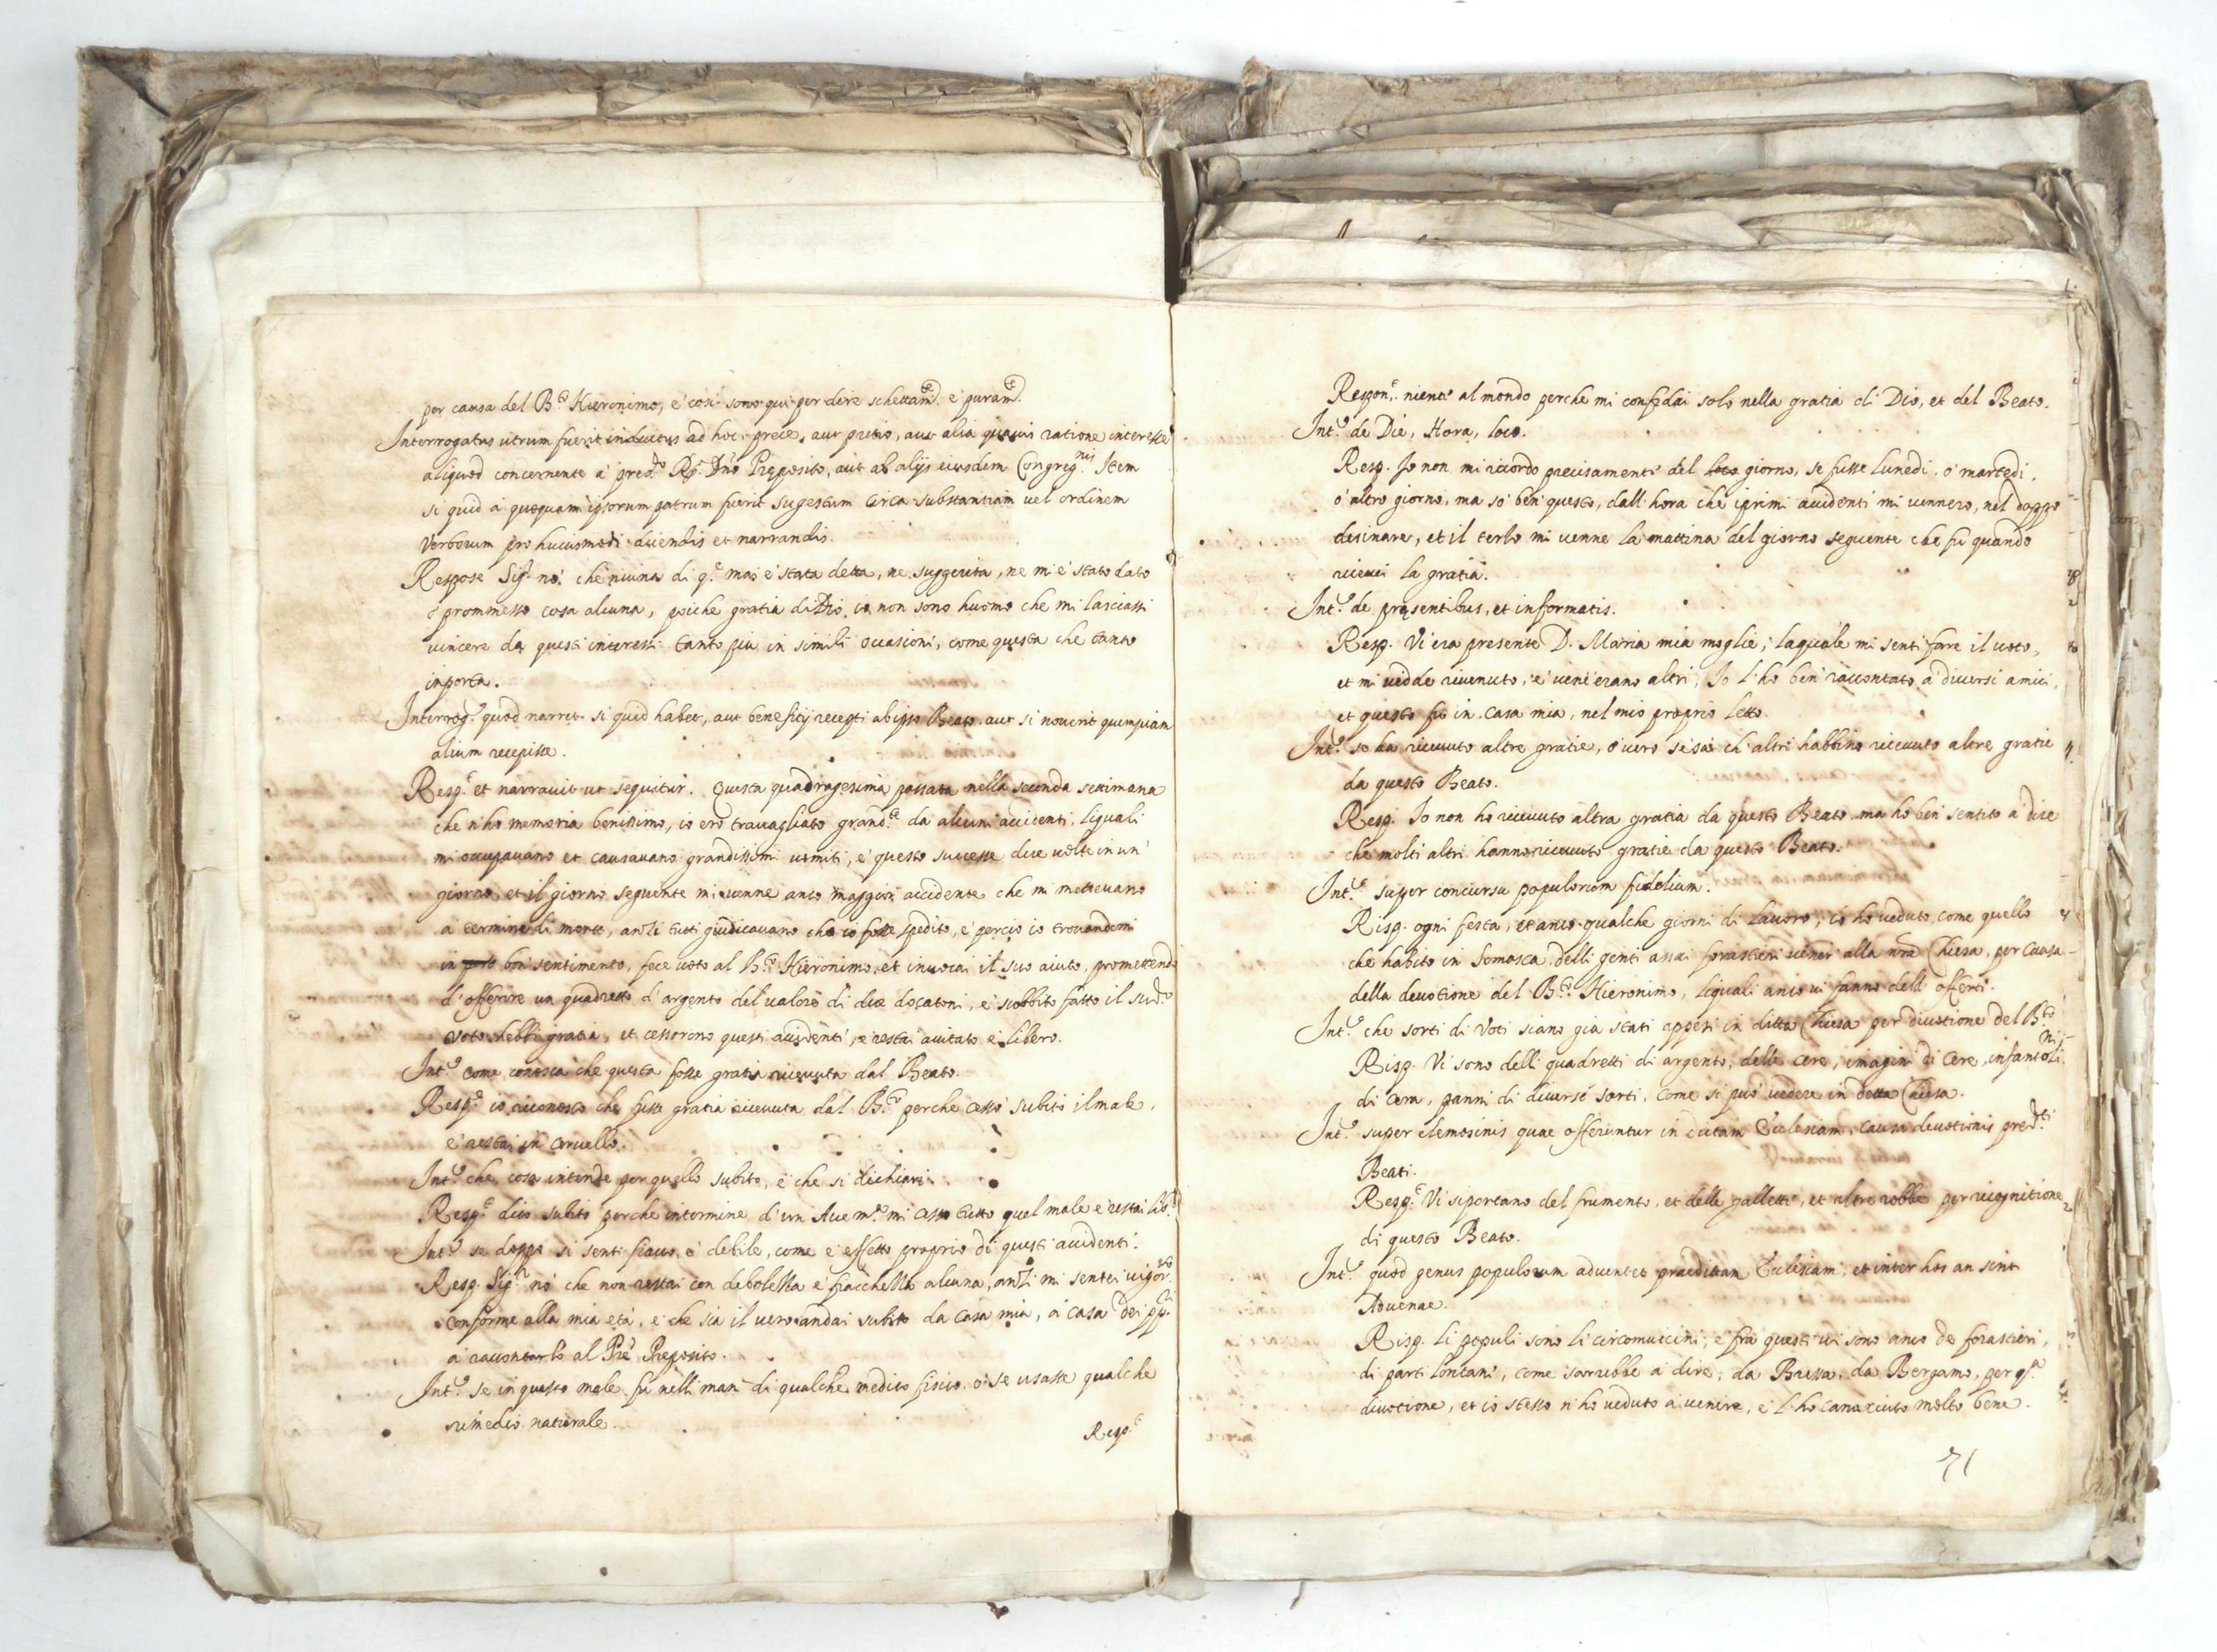 per causa del B.to Hieronimo, e così sono qui per dire schettam.te e puram.te
Interrogatus utrum fuerit inductus ad hoc prece, aut pretio, aut alia quavis ratione interesse
aliquod concernente à pred.to R.do Dno Preposito, aut ab alijs eiusdem Congreg.nis Item
si quid à quoquam ipsorum patrum fuerit sugestum circa substantiam vel ordinem
verborum pro huiusmodi dicendis et narrandis.
Respose Sig.r nò che niuna di q.te mai è stata detta, ne suggerita, ne mi è stato dato
ò prommesso cosa alcuna, poiche gratia di Dio io non sono huomo che mi lasciassi
vincere da questi interessi tanto piu in simili occasioni, come questa che tanto
inporta.
Interrog.s quod narret si quid habet, aut beneficij recepti ab ipso Beato aut si noverit quempiam
alium recepisse.
Resp.t et narravit ut sequitur. Questa quadragesima passata nella seconda settimana
che n'ho memoria benissimo, io ero travagliato grand.te da alcuni accidenti, liquali
mi occupavano et causavano grandissimi vomiti, e questo successe due volte in un'
giorno, et il giorno seguente mi venne anco maggior accidente che mi mettevano
à termine di morte, anzi tutti giudicavano che io fosse spedito, e perciò io trovandomi
in bon sentimento, fece voto al B.to Hieronimo, et invocai il suo aiuto, promettendo
d'offerire un quadretto d'argento del valore di due docatoni, e subbito fatto il sud.to
voto hebbi gratia, et cessorono questi accidenti, e restai aiutato e libero.
Int.s come conosca che questa fosse gratia ricevuta dal Beato.
Resp.t io riconosco che fusse gratia ricevuta dal B.to perche cessò subito il male,
e restai in cervello.
Int.s che cosa intende per quello subito, e che si dichiari.
Resp.t dico subito perche in termine d'un Ave m.a mi cessò tutto quel male e restai lib.o
Int.s se doppo si sentì fiacco, e debile, come è effetto proprio di questi accidenti.
Resp. Sig.r nò che non restai con debolezza e fiacchezza alcuna, anzi mi sentei vigor.so
conforme alla mia età, e che sia il vero andai subito da casa mia, à casa dei pp.ri
à raccontarlo al Pre Preposito.
Int.s se in questo male fu nelli mani di qualche medico fisico ò se usasse qualche
rimedio naturale.
Resp.t
Respon.t niente al mondo perche mi confidai solo nella gratia di Dio, et del Beato.
Int.s de Die, Hora, loco.
Resp. Io non mi ricordo precisamente del loco giorno, se fusse lunedi, ò martedi,
ò altro giorno, ma sò ben questo, dall'hora che i primi accidenti mi vennero, nel doppo
desinare, et il terzo mi venne la mattina del giorno seguente che fu quando
ricevei la gratia.
Int.s de presentibus, et informatis.
Resp. Vi era presente D. Maria mia moglie, laquale mi sentì fare il voto,
et mi vedde rivenuto, e ven'erano altri, Io l'ho ben raccontato à diversi amici,
et questo fu in casa mia, nel mio proprio letto.
Int.s se ha ricevuto altre gratie, ò vero se sà ch'altri habbino ricevuto altre gratie
da questo Beato.
Resp. Io non ho ricevuto altra gratia da questo Beato ma ho ben sentito à dire
che molti altri hanno ricevuto gratie da questo Beato.
Int.s super concursu populorum fidelium.
Risp. ogni festa, et anco qualche giorni di lavoro, io ho veduto, come quello
che habito in Somasca delli genti assai forastieri venir alla nra Chiesa, per causa
della devotione del B.to Hieronimo, liquali anco vi fanno dell'offerti.
Int.s che sorti di Voti siano già stati appesi in ditta Chiesa per divotione del B.to
Risp. Vi sono delli quadretti di argento, delle cere, imagini di cere, infantolini
di cera, panni di diverse sorti, come si può vedere in detta Chiesa.
Int.s super elemosinis quae offeruntur in dictam Ecclesiam, causa devotionis pred.ti
Beati.
Resp.t Vi si portano del frumento, et delle gallette, et altre robbe per ricognitione
di questo Beato.
Int.s quod genus populorum adventet praedittam Ecclesiam, et inter hos an sint
Advenae.
Risp. li populi sono li circomvicini, e frà questi vi sono anco de forastieri,
di parti lontani, come sarrebbe à dire, da Bressa, da Bergamo, per q.sta
divotione, et io stesso n'ho veduto a venire, e l'ho canosciuto molto bene.
71